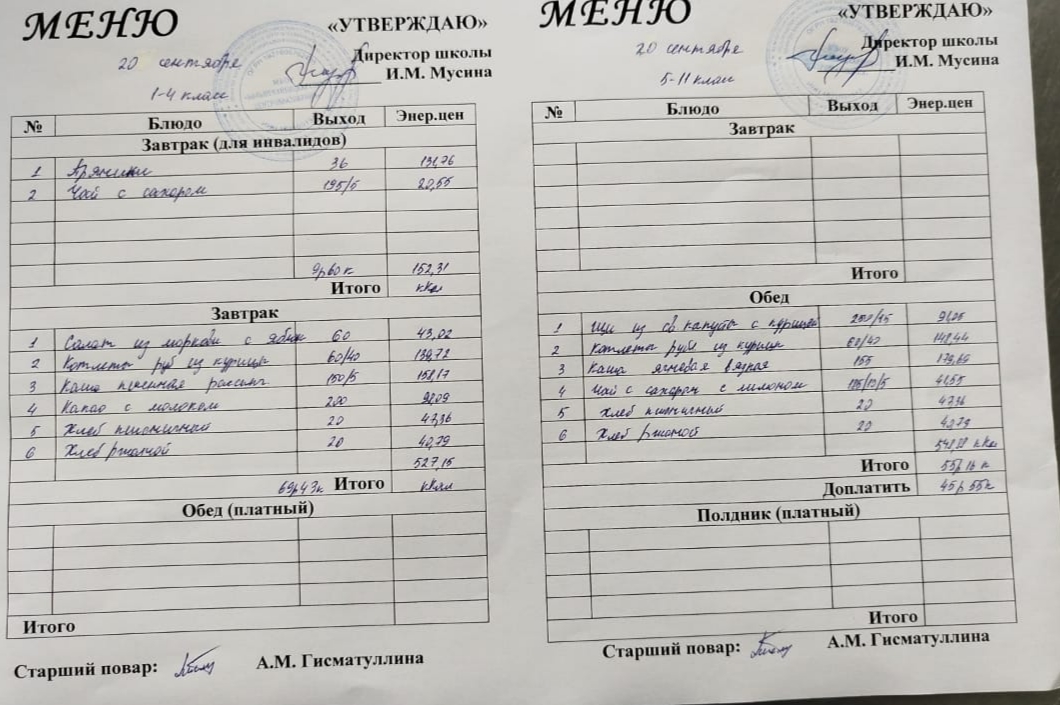 МЕНЮ
«УТВЕРЖДАЮ»
20 сентября
Директор школы
И.М. Мусина
1-4 класс
№ Блюдо Выход Энер.цен
Завтрак (для инвалидов)
1 Пряники 36 131,76
2 Чай с сахаром 195/5 20,55
9р60к 152,31
Итого ккал
Завтрак
1 Салат из моркови с яблок 60 43,02
2 Котлеты руб из курицы 60/40 139,72
3 Каша пшенная рассып 150/5 158,17
4 Какао с молоком 200
5 Хлеб пшеничный 20 47,36
6 Хлеб ржаной 20 40,79
527,15
69р43к Итого ккал
Обед (платный)
Итого
Старший повар: А.М. Гисматуллина
МЕНЮ
«УТВЕРЖДАЮ»
20 сентября
Директор школы
И.М. Мусина
5-11 класс
№ Блюдо Выход Энер.цен
Завтрак
Итого
Обед
1 Щи из св капусты с курицей
2 Котлеты руб из курицы 60/40 148,44
3 Каша ячневая вязкая 155
4 Чай с сахаром с лимоном 41,55
5 Хлеб пшеничный 20 47,36
6 Хлеб ржаной 20 40,79
ккал
Итого 55р 16 к
Доплатить 45р 55к
Полдник (платный)
Итого
Старший повар: А.М. Гисматуллина